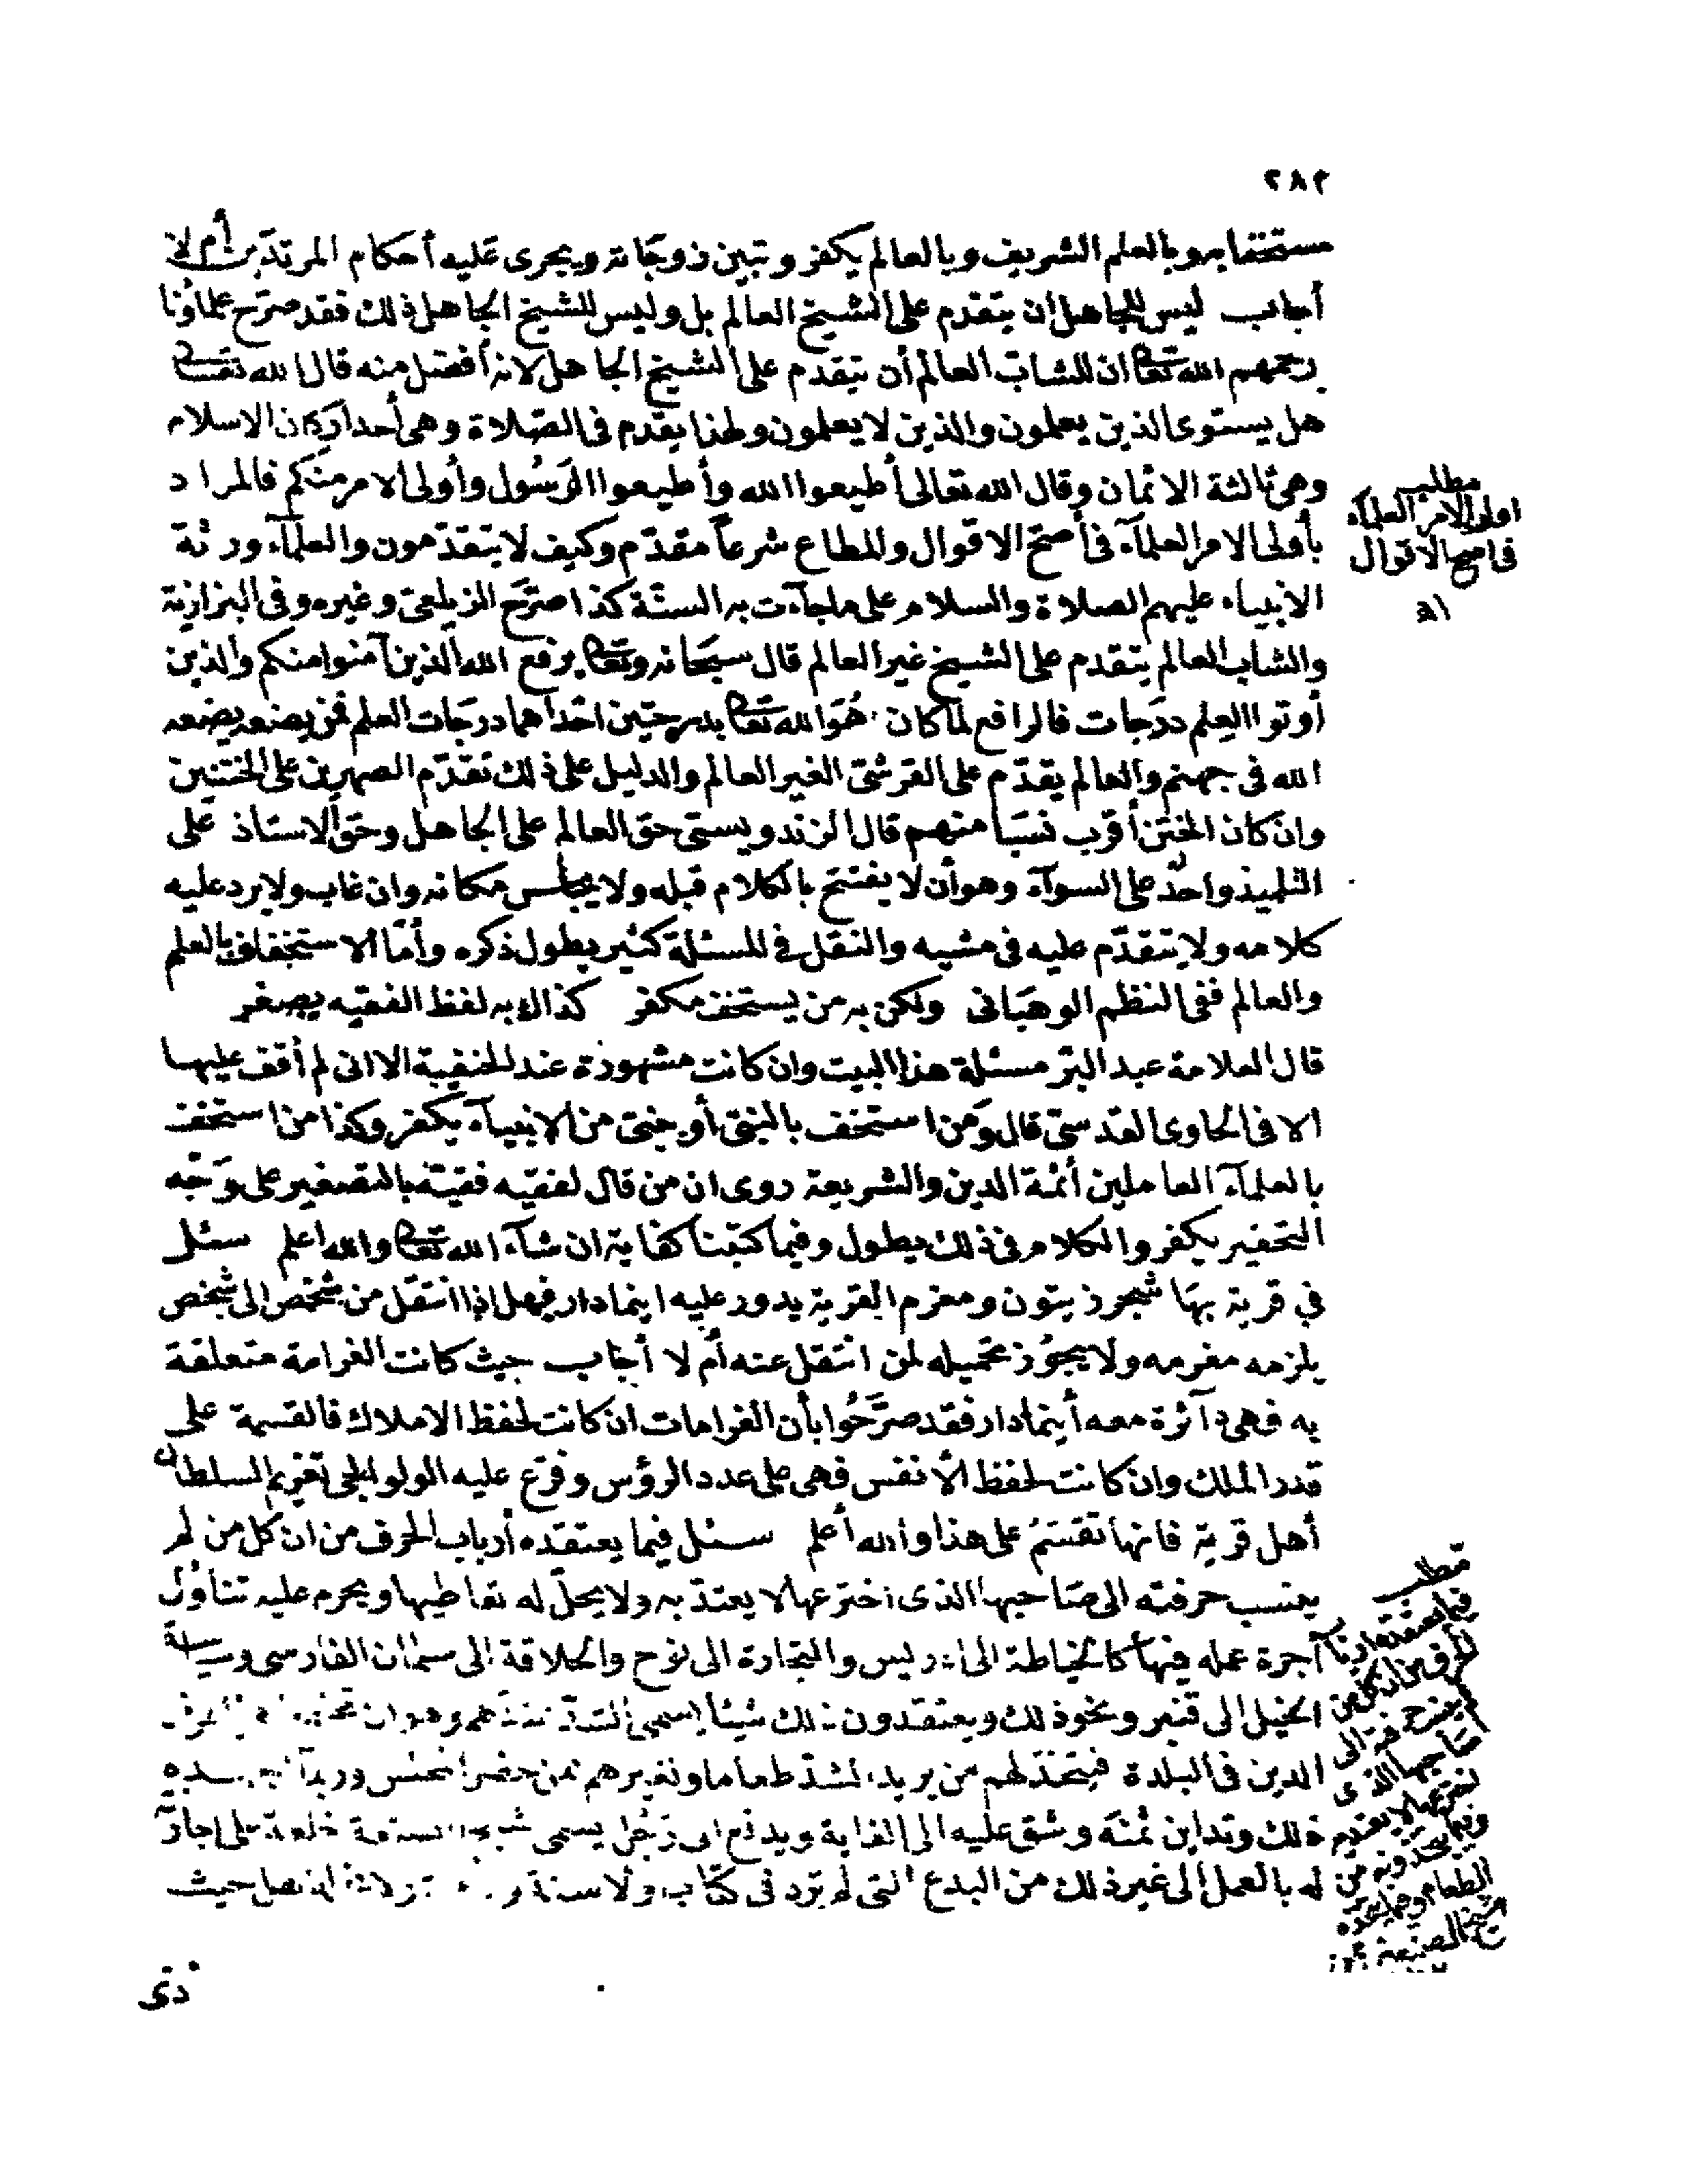 ٢٨٢
مستخفا به وبالعلم الشريف وبالعالم يكفر وتبين زوجاته ويجرى عليه أحكام المرتدين أم لا
أجاب ليس للجاهل ان يتقدم على الشيخ العالم بل وليس للشيخ الجاهل ذلك فقد صرح علماؤنا
رحمهم الله تعالى ان للشاب العالم أن يتقدم على الشيخ الجاهل لانه أفضل منه قال الله تعالى
هل يستوى الذين يعلمون والذين لا يعلمون ولهذا يقدم فى الصلاة وهى أحد أركان الاسلام
وهى ثالثة الايمان وقال الله تعالى أطيعوا الله وأطيعوا الرسول وأولى الامر منكم فالمراد
بأولى الامر العلمآء فى أصح الاقوال والمطاع شرعاً مقدم وكيف لا يتقدمون والعلمآء ورثة
الانبياء عليهم الصلاة والسلام على ماجآءت به السنة كذا صرح الزيلعى وغيره وفى البزازية
والشاب العالم يتقدم على الشيخ غير العالم قال سبحانه وتعالى يرفع الله الذين آمنوا منكم والذين
أوتوا العلم درجات فالرافع لما كان هو الله تعالى بدرجتين احداهما درجات العلم فمن يضعه يضعه
الله فى جهنم والعالم يقدم على القرشى الغير العالم والدليل على ذلك تقدم الصهرين على الختنين
وان كان الختن أقرب نسبا منهم قال الزندويستى حق العالم على الجاهل وحق الاستاذ على
التلميذ واحد على السوآء وهو أن لا يفتتح بالكلام قبله ولا يجلس مكانه وان غاب ولا يرد عليه
كلامه ولا يتقدم عليه فى مشيه والنقل فى المسئلة كثير يطول ذكره وأما الاستخفاف بالعلم
والعالم ففى النظم الوهبانى ولكن به من يستخف مكفر كذاك به لفظ الفقيه يصغر
قال العلامة عبد البر مسئلة هذا البيت وان كانت مشهورة عند الحنفية الا انى لم أقف عليها
الا فى الحاوى القدسى قال ومن استخف بالنبى أو بنبى من الانبيآء يكفر وكذا من استخف
بالعلمآء العاملين أئمة الدين والشريعة روى ان من قال لفقيه فقيّه بالتصغير على وجه
التحقير يكفر والكلام فى ذلك يطول وفيما كتبنا كفاية ان شآء الله تعالى والله اعلم سئل
في قرية بها شجر زيتون ومغرم القرية يدور عليه اينما دار فهل اذا انتقل من شخص الى شخص
يلزمه مغرمه ولا يجوز تحميله لمن انتقل عنه أم لا أجاب حيث كانت الغرامة متعلقة
به فهى دآئرة معه أينما دار فقد صرحوا بأن الغرامات ان كانت لحفظ الاملاك فالقسمة على
قدر الملك وان كانت لحفظ الأنفس فهى على عدد الرؤس وفرع عليه الولوالجى تغريم السلطان
أهل قرية فانها تقسم على هذا والله أعلم سئل فيما يعتقده أرباب الحرف من ان كل من لم
ينسب حرفته الى صاحبها الذى اخترعها لا يعتد به ولا يحل له تعاطيها ويحرم عليه تناول
أجرة عمله فيها كالخياطة الى ادريس والنجارة الى نوح والحلاقة الى سلمان الفارسى وسياسة
الخيل الى قنبر ونحو ذلك ويعتقدون ذلك شيئا يسمى الشد عندهم وهو ان
الدين فى البلدة فيتخذ لهم من يريد الشد طعاما ونغيرهم ممن حضر المجلس
ذلك وتداين ثمنه وشق عليه الى الغاية ويدفع الى رجل يسمى شيخ الصنعة خلعة على اجازته
له بالعمل الى غير ذلك من البدع التى لم ترد فى كتاب ولا سنة حيث
ذى
مطلب
اولى الامر العلمآء
فى اصح الاقوال
اه
مطلب
فيما يعتقده ارباب
الحرف من ان كل من
لم ينسب حرفته الى
صاحبها الذى
اخترعها لا يعتد به
من
الطعام
شيخ الصنعة